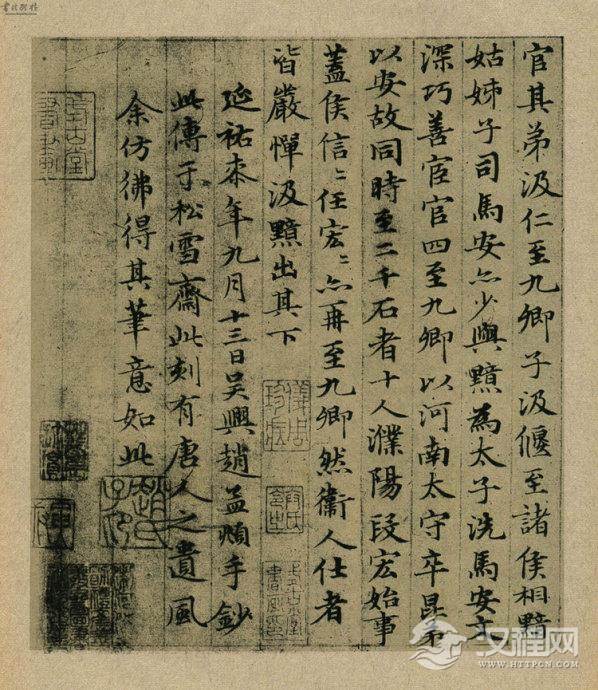 官其弟汲仁至九卿子汲偃至諸侯相黯
姑姊子司馬安亦少與黯為太子洗馬安文
深巧善宦官四至九卿以河南太守卒昆弟
以安故同時至二千石者十人濮陽段宏始事
蓋侯信〻任宏〻亦再至九卿然衞人仕者
皆嚴憚汲黯出其下
延祐柒年九月十三日吳興趙孟頫手鈔
此傳于松雪齋此刻有唐人之遺風
余仿彿得其筆意如此
趙氏子昂
汉程网
WWW.HTTPCN.COM